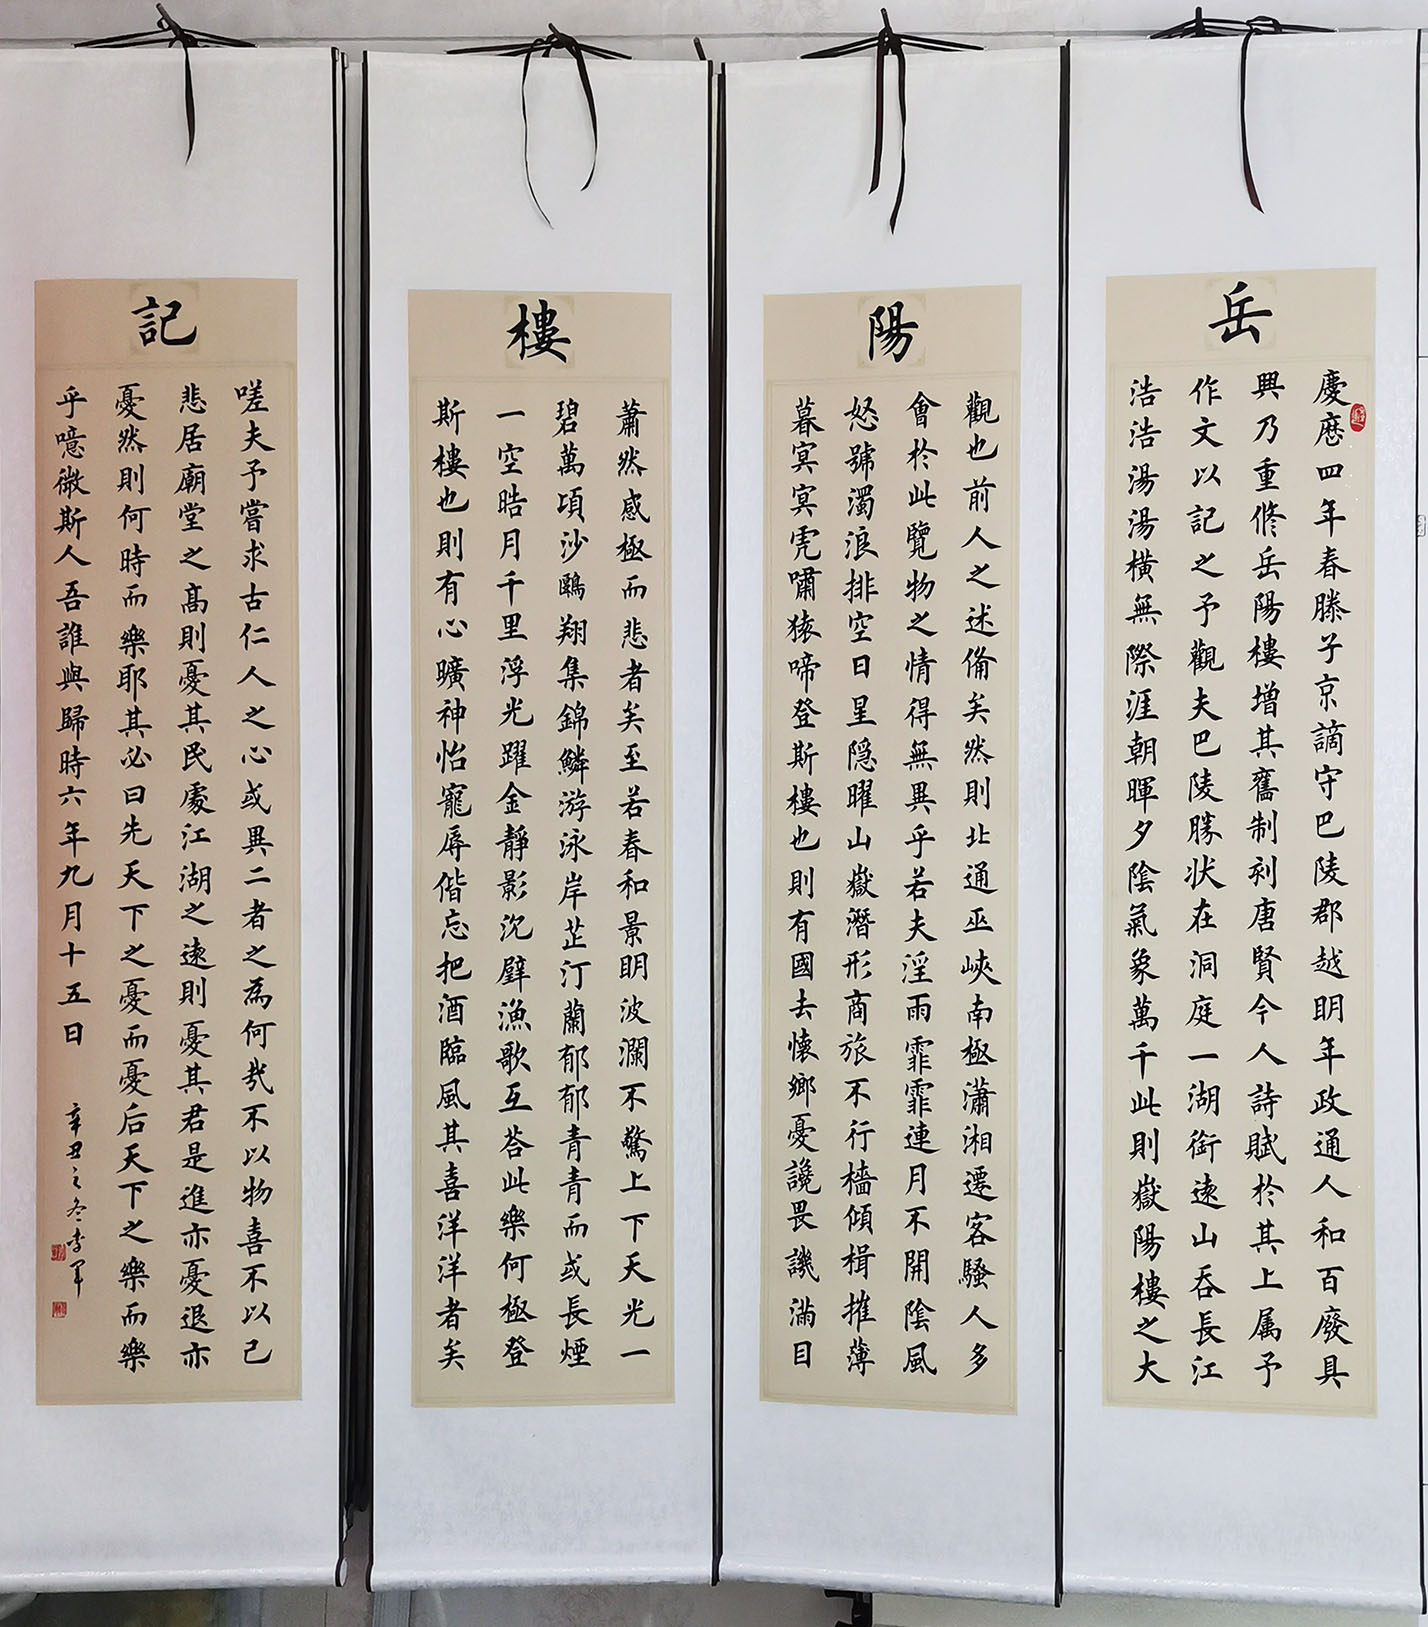 岳
慶歷四年春滕子京謫守巴陵郡越明年政通人和百廢具
興乃重修岳陽樓增其舊制刻唐賢今人詩賦於其上属予
作文以記之予觀夫巴陵勝狀在洞庭一湖銜遠山吞長江
浩浩湯湯橫無際涯朝暉夕陰氣象萬千此則嶽陽樓之大
陽
觀也前人之述備矣然則北通巫峽南極瀟湘遷客騷人多
會於此覽物之情得無異乎若夫淫雨霏霏連月不開陰風
怒號濁浪排空日星隱曜山嶽潛形商旅不行檣傾楫摧薄
暮冥冥虎嘯猿啼登斯樓也則有國去懷鄉憂讒畏譏滿目
樓
蕭然感極而悲者矣至若春和景明波瀾不驚上下天光一
碧萬頃沙鷗翔集錦鱗游泳岸芷汀蘭郁郁青青而或長煙
一空皓月千里浮光躍金靜影沉璧漁歌互荅此樂何極登
斯樓也則有心曠神怡寵辱偕忘把酒臨風其喜洋洋者矣
記
嗟夫予嘗求古仁人之心或異二者之為何哉不以物喜不以己
悲居廟堂之高則憂其民處江湖之遠則憂其君是進亦憂退亦
憂然則何時而樂耶其必曰先天下之憂而憂后天下之樂而樂
乎噫微斯人吾誰與歸時六年九月十五日
辛丑之冬李軍